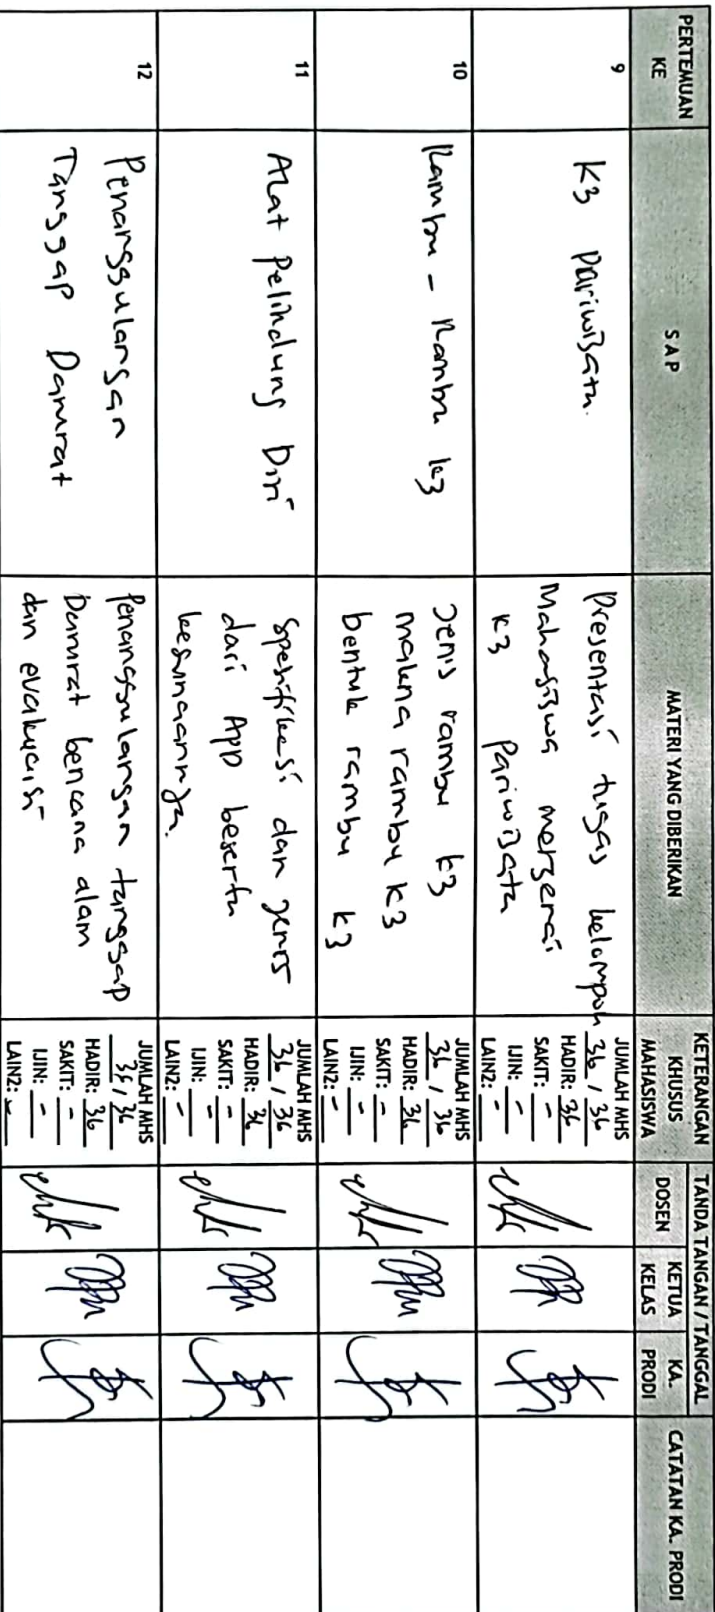 PERTEMUAN KE
SAP
MATERI YANG DIBERIKAN
KETERANGAN KHUSUS MAHASISWA
TANDA TANGAN / TANGGAL
DOSEN
KETUA KELAS
KA. PRODI
CATATAN KA. PRODI
9
K3 Pariwisata.
Presentasi tugas kelompok
Mahasiswa mengenai
K3 Pariwisata
JUMLAH MHS
36 / 36
HADIR: 36
SAKIT: -
IJIN: -
LAIN2: -
10
Rambu - Rambu K3
Jenis rambu K3
makna rambu K3
bentuk rambu K3
JUMLAH MHS
36 / 36
HADIR: 36
SAKIT: -
IJIN: -
LAIN2: -
11
Alat Pelindung Diri
Spesifikasi dan jenis
dari APD beserta
kegunaannya.
JUMLAH MHS
36 / 36
HADIR: 36
SAKIT: -
IJIN: -
LAIN2: -
12
Penanggulangan
Tanggap Darurat
Penanggulangan tanggap
Darurat bencana alam
dan evakuasi
JUMLAH MHS
/ 36
HADIR: 36
SAKIT: -
IJIN: -
LAIN2: -